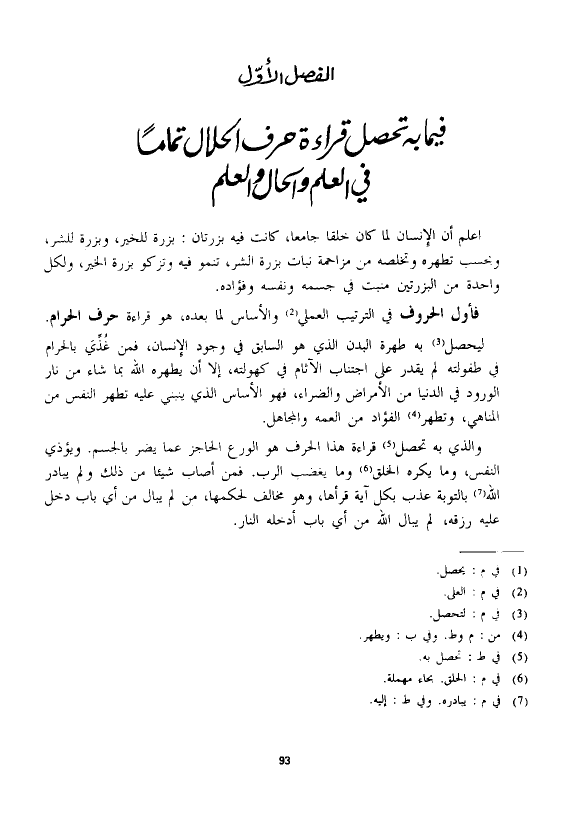 الفصل الأوّل
فيما به تحصل قراءة حرف الحلال تماما
في العلم والحال والعلم
اعلم أن الإنسان لما كان خلقا جامعا، كانت فيه بزرتان : بزرة للخير، وبزرة للشر،
وبحسب تطهره وتخلصه من مزاحمة نبات بزرة الشر، تنمو فيه وتزكو بزرة الخير، ولكل
واحدة من البزرتين منبت في جسمه ونفسه وفؤاده.
فأول الحروف في الترتيب العملي(2) والأساس لما بعده، هو قراءة حرف الحرام.
ليحصل(3) به طهرة البدن الذي هو السابق في وجود الإنسان، فمن غُذِّيَ بالحرام
في طفولته لم يقدر على اجتناب الآثام في كهولته، إلا أن يطهره الله بما شاء من نار
الورود في الدنيا من الأمراض والضراء، فهو الأساس الذي ينبني عليه تطهر النفس من
المناهي، وتطهر(4) الفؤاد من العمه والمجاهل.
والذي به تحصل(5) قراءة هذا الحرف هو الورع الحاجز عما يضر بالجسم. ويؤذي
النفس، وما يكره الخلق(6) وما يغضب الرب. فمن أصاب شيئا من ذلك ولم يبادر
الله(7) بالتوبة عذب بكل آية قرأها، وهو مخالف لحكمها، من لم يبال من أي باب دخل
عليه رزقه، لم يبال الله من أي باب أدخله النار.
(1) في م : يحصل.
(2) في م : العلى.
(3) في م : لتحصل.
(4) من : م وط. وفي ب : ويطهر.
(5) في ط : تحصل به.
(6) في م : الحلق. بحاء مهملة.
(7) في م : يبادره. وفي ط : إليه.
93